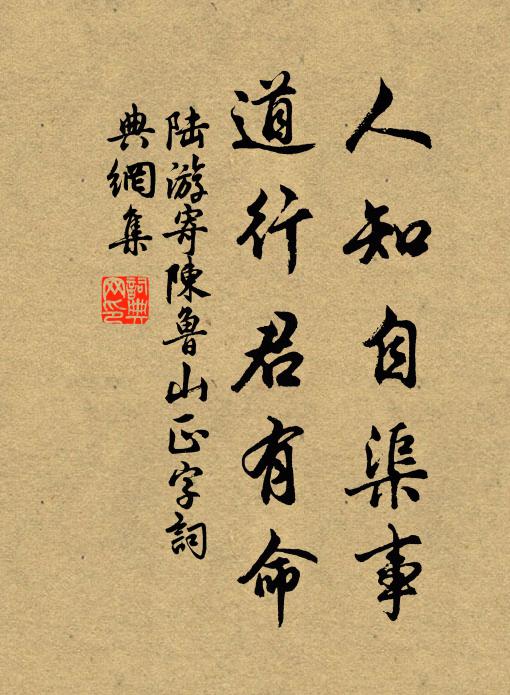 人知自渠事
道行君有命
陆游寄陳魯山正字詞
典網集
詞典
网印